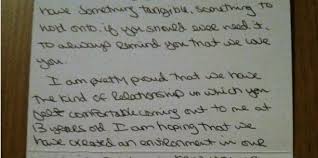 have something tangible, something to
hold onto, if you should ever need it,
to always remind you that we love
you.
I am pretty proud that we have
the kind of relationship in which you
felt comfortable coming out to me at
13 years old. I am hoping that we
have created an environment in our